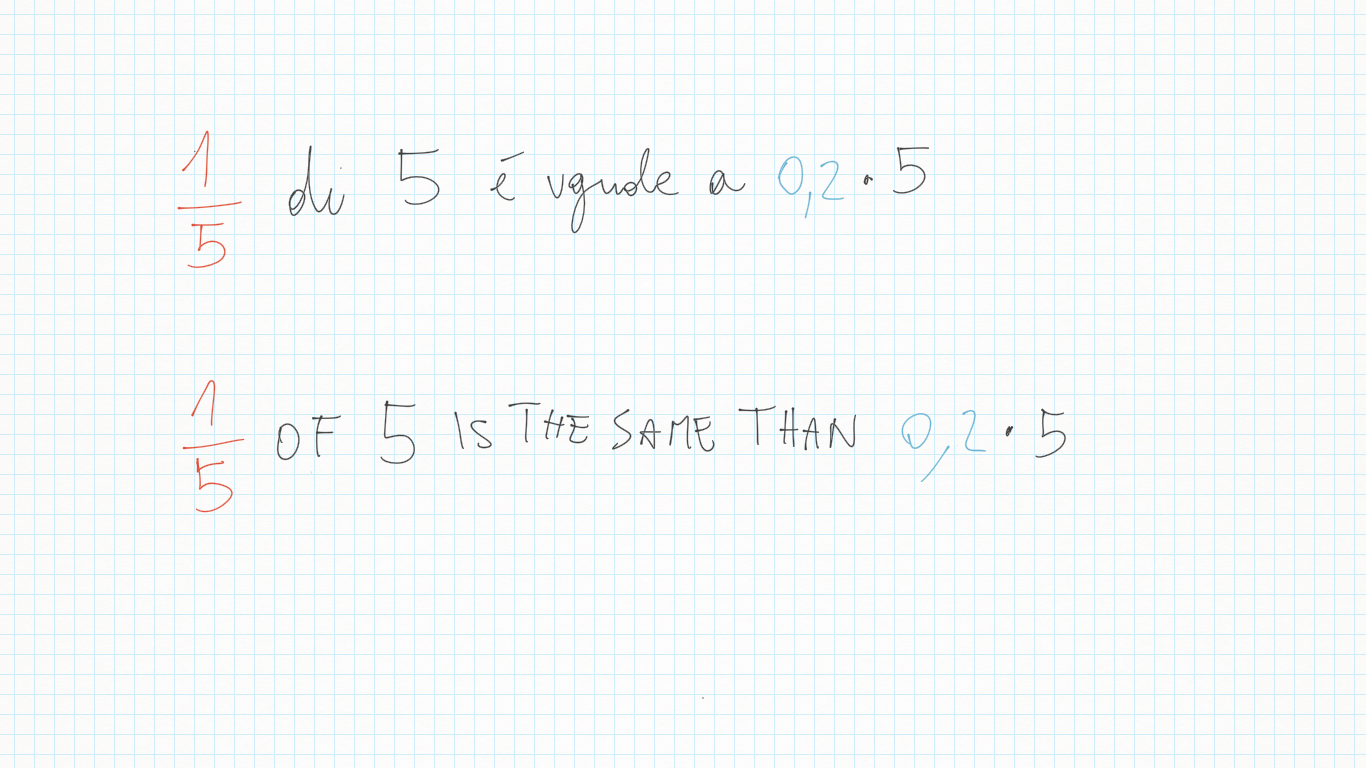 1/5 di 5 é uguale a 0,2 · 5
1/5 OF 5 IS THE SAME THAN 0,2 · 5